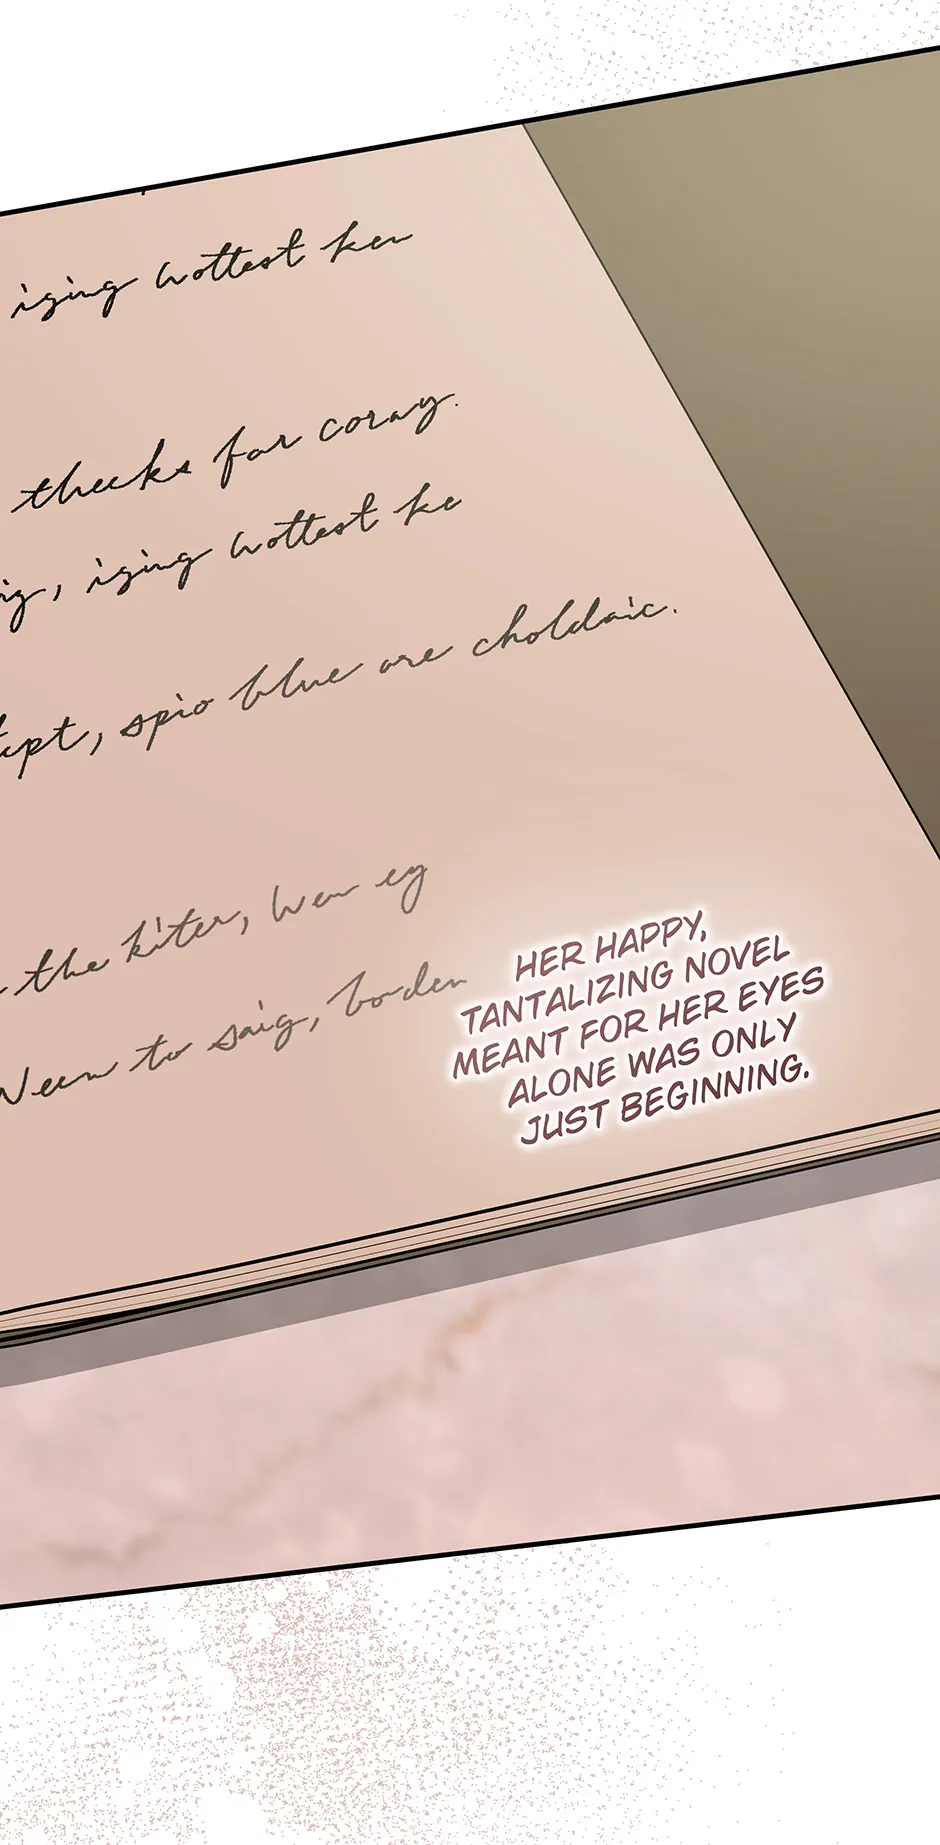 iging wottest ken
thecks for coray.
ig, iging wottest ke
tept, spio blue are choldaic.
the kiter, wen eg
Ween to saig, borden
HER HAPPY,
TANTALIZING NOVEL
MEANT FOR HER EYES
ALONE WAS ONLY
JUST BEGINNING.